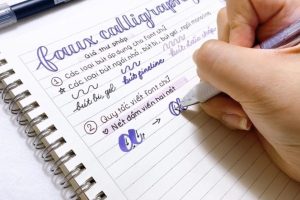 faux calligraphy
giả thư pháp
① Các loại bút áp dụng cho font chữ
☆ Các loại bút ngòi nhỏ, bút bi, bút gel,
bút bi, gel
bút fineline
② Quy tắc viết font chữ
♥ Nét đậm viền hai nét
a → a